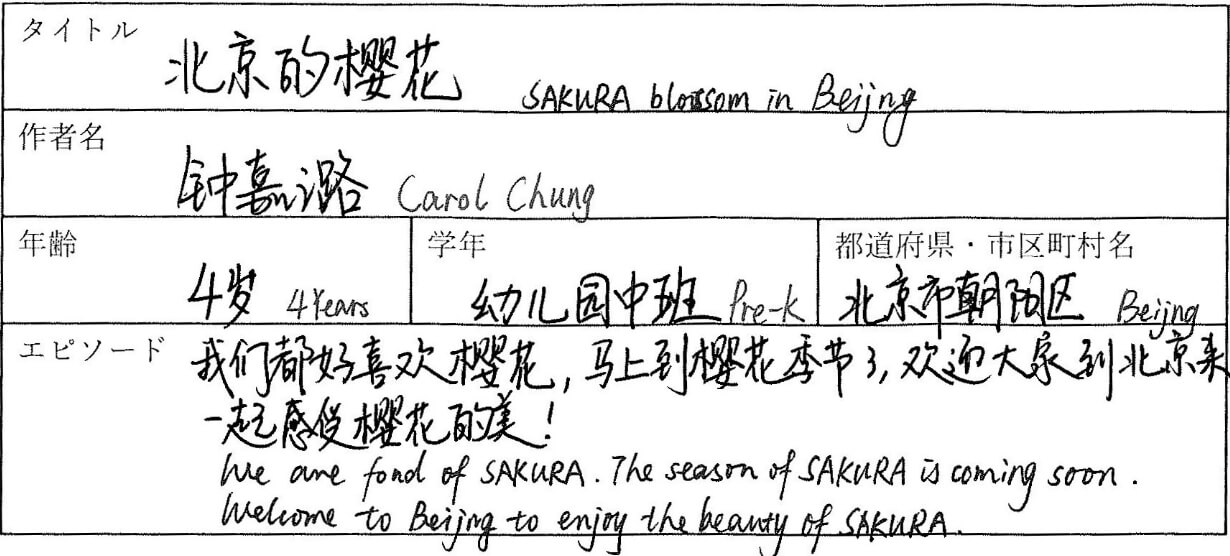 タイトル
北京的樱花 SAKURA blossom in Beijng
作者名
钟嘉潞 Carol Chung
年齢 学年 都道府県・市区町村名
4岁 4Years 幼儿园中班 Pre-K 北京市朝阳区 Beijng
エピソード 我们都好喜欢樱花，马上到樱花季节了，欢迎大家到北京来
一起感受樱花的美！
We are fond of SAKURA. The season of SAKURA is coming soon.
Welcome to Beijng to enjoy the beauty of SAKURA.